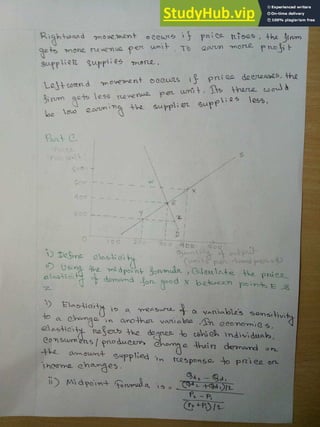 StudyHub.vip
Experienced writers
On-time delivery
100% plagiarism free
Rightward movement occurs if price rises, the firm
gets more revenue per unit. To earn more profit
supplier supplies more.
Leftward movement occurs if price decreases, the
firm gets less revenue per unit. As there would
be low earning the supplier supplies less.
Part C.
S
X
Z
D
0 100 200 300 400 500
Quantity of output
(units per time period)
i) Define elasticity
ii) Using the midpoint formula, calculate the price
elasticity of demand for good X between points E &
Z
i) Elasticity is a measure of a variable's sensitivity
to a change in another variable. In economics,
elasticity refers the degree to which individuals,
consumers/producers change their demand or
the amount supplied in response to price or
income changes.
ii) Midpoint formula is =
Qd₂ - Qd₁
(Qd₂ + Qd₁)/2
P₂ - P₁
(P₂ + P₁)/2